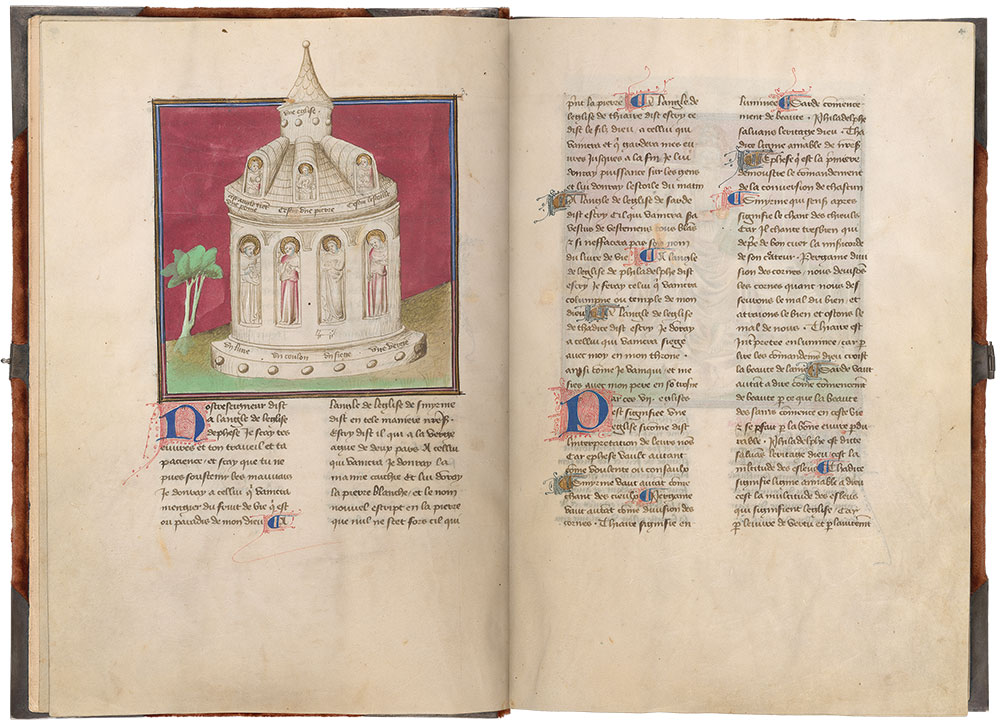 4
vne eglise
cest angle rien
vne pome
cestui vne pierre
cestui lestoille
vn liure
vn coulon
vn siege
vne verge
Nostreseigneur dist
a langle de leglise
dephese Je scay tes
euures et ton traueil et ta
pacience et scay que tu ne
pues soustenir les mauuais
Je donray a cellui q̄ vaincra
mengier du fruit de vie q̄ est
ou paradis de mon dieu A
langle de leglise de smyrne
dist en tele maniere
Cestcy dist il qui a la verge
ague de deux pars A cellui
qui vaincra Je donray la
manne cuchee et lui donray
la pierre blanche et le nom
nouuel escript en la pierre
que nul ne scet fors cil qui
prent la pierre A langle de
leglise de thiaire dist cestcy ce
dist le filz dieu a cellui qui
vaincra et q̄ gardera mes eu
ures Jusques a la fin Je lui
donray puissance sur les gens
et lui donray lestoile du matin
A langle de leglise de sarde
dist cestcy Cil qui vaincra sa
vestus de vestemens tous blās
& si neffaceray pas son nom
du liure de vie A langle
de leglise de philadelphe dist
cestcy Je feray celui q̄ vaincra
columpne ou temple de mon
dieu A langle de leglise de
thadice dist cestcy Je donray
a cellui qui vaincra siegge
auec moy en mon throne
ainsi cōme Je vainqui et me
sies auec mon pere en sō trosne
Par ces vij. eglises
est signifie vne
eglise si cōme dist
linterpretacion de leurs noms
Car ephese vault autant
cōme voulente ou conseil
Smyrne vaut autat cōme
chant des cieulx Pergame
vaut autat cōme diuision des
cornes. Thiaire signifie en
luminee Sarde commence
ment de beaute. Philadelphe
saluans leritage dieu. Tha
dice lignie amiable de
Ephese q̄ est la p̄miere
demoustre le comandement
de la conuersion de chascun
Smyrne qui sensuit apres
signifie le chant des cieulx
Car il chante tresbien qui
de bon cuer la mīcorde
de son createur. Pergame diui
sion des cornes, nous deuisōs
les cornes quant nous des
seurons le mal du bien et
attraions le bien et ostons le
mal de nous. Thiaire est
interpretee enluminee, car p̄
luire les comandemēs dieu croist
la beaute de lame Sarde vaut
autāt a dire cōme comencemēt
de beaute p̄ ce que la beaute
des sains comence en ceste vie
& se p̄fait p̄ la bone euure p̄du
rable. Philadelphe est dicte
saluant leritage dieu, cest la
multitude des esleus Thadice
signifie lignie amiable a dieu
cest la multitude des esleus
qui signifient leglise, Car
p̄ leuure de vertu et p̄